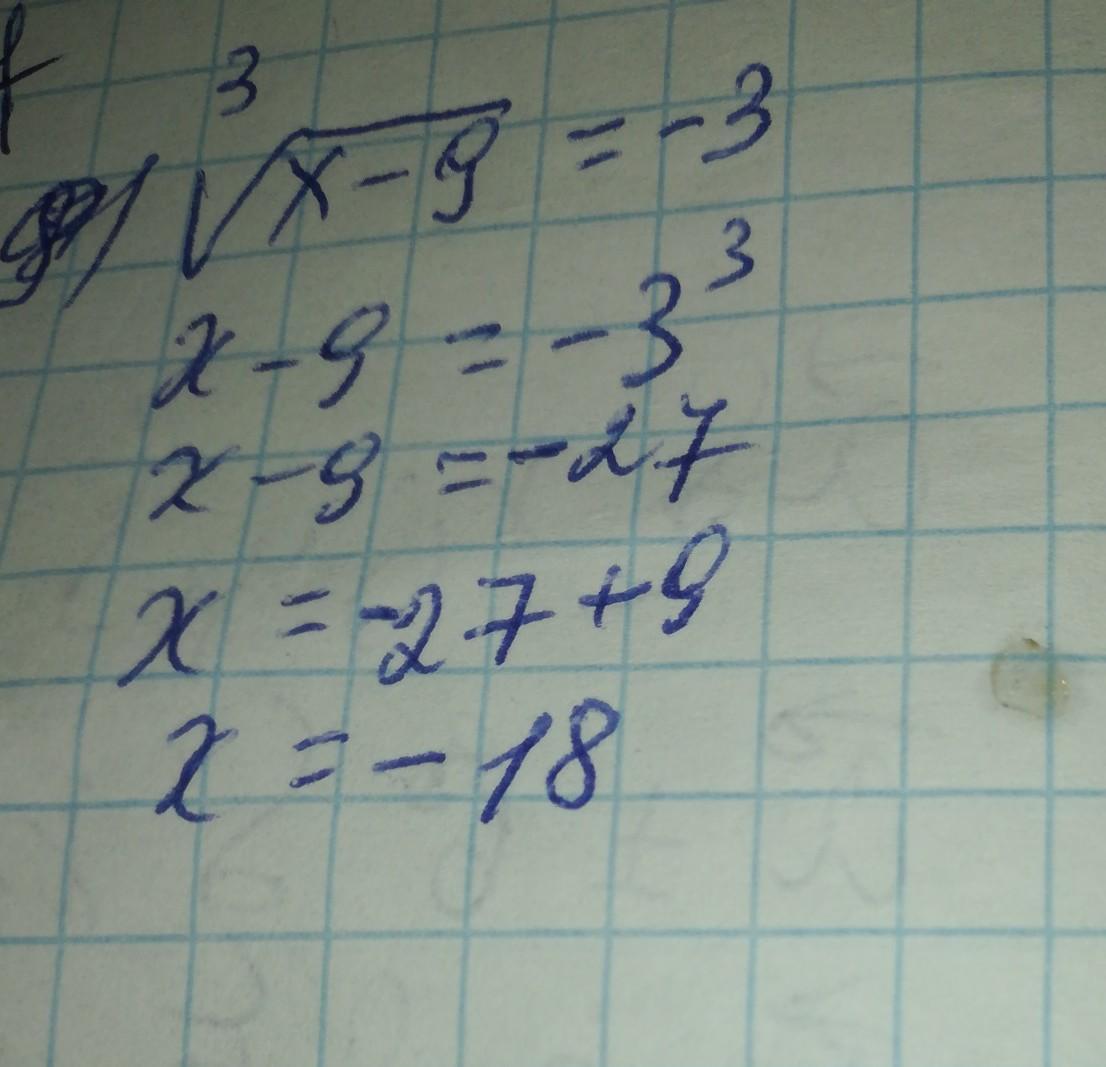 ∛x-9 = -3
x-9 = -3³
x-9 =-27
x = -27+9
x = -18